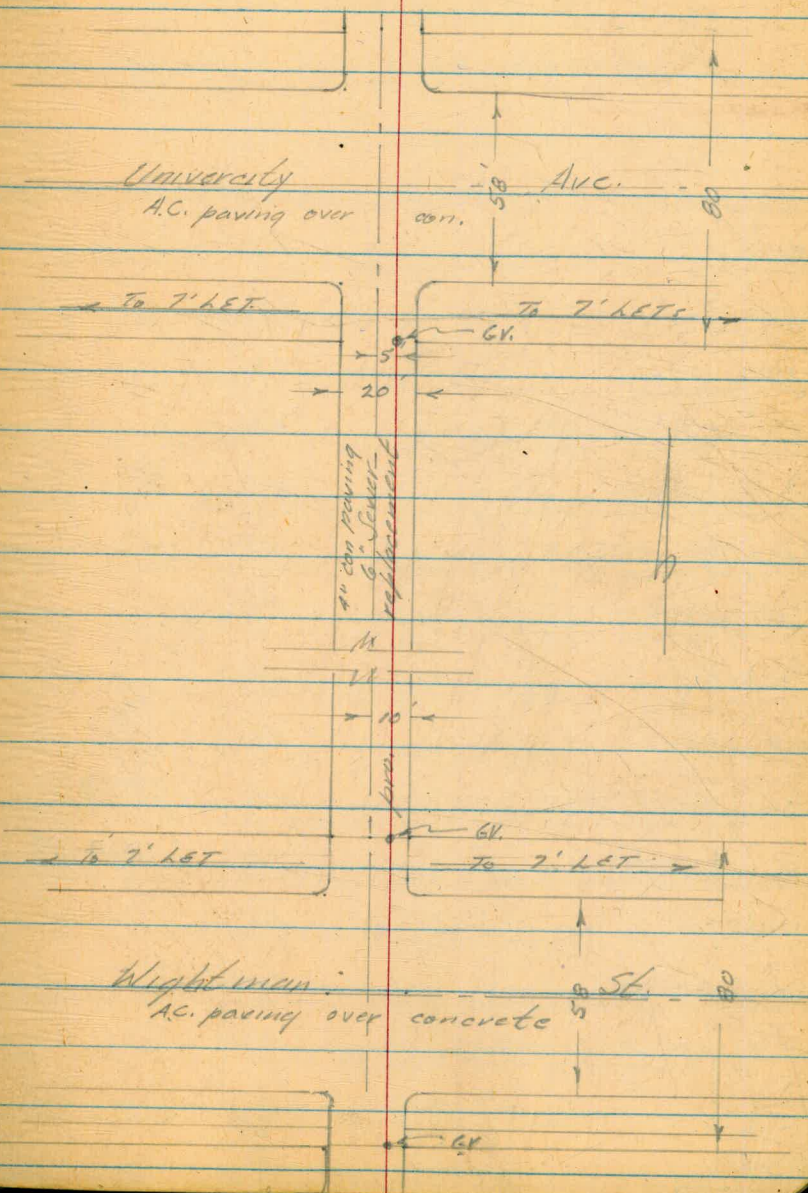 Univercity Ave.
A.C. paving over con.
58'
80
To 7' LET.
To 7' LETs
GV.
5'
20'
4" con paving
6" Sewer
replacement
10'
pro.
GV.
To 7' LET
To 7' LET
Wightman St.
A.C. paving over concrete
58
80
GV